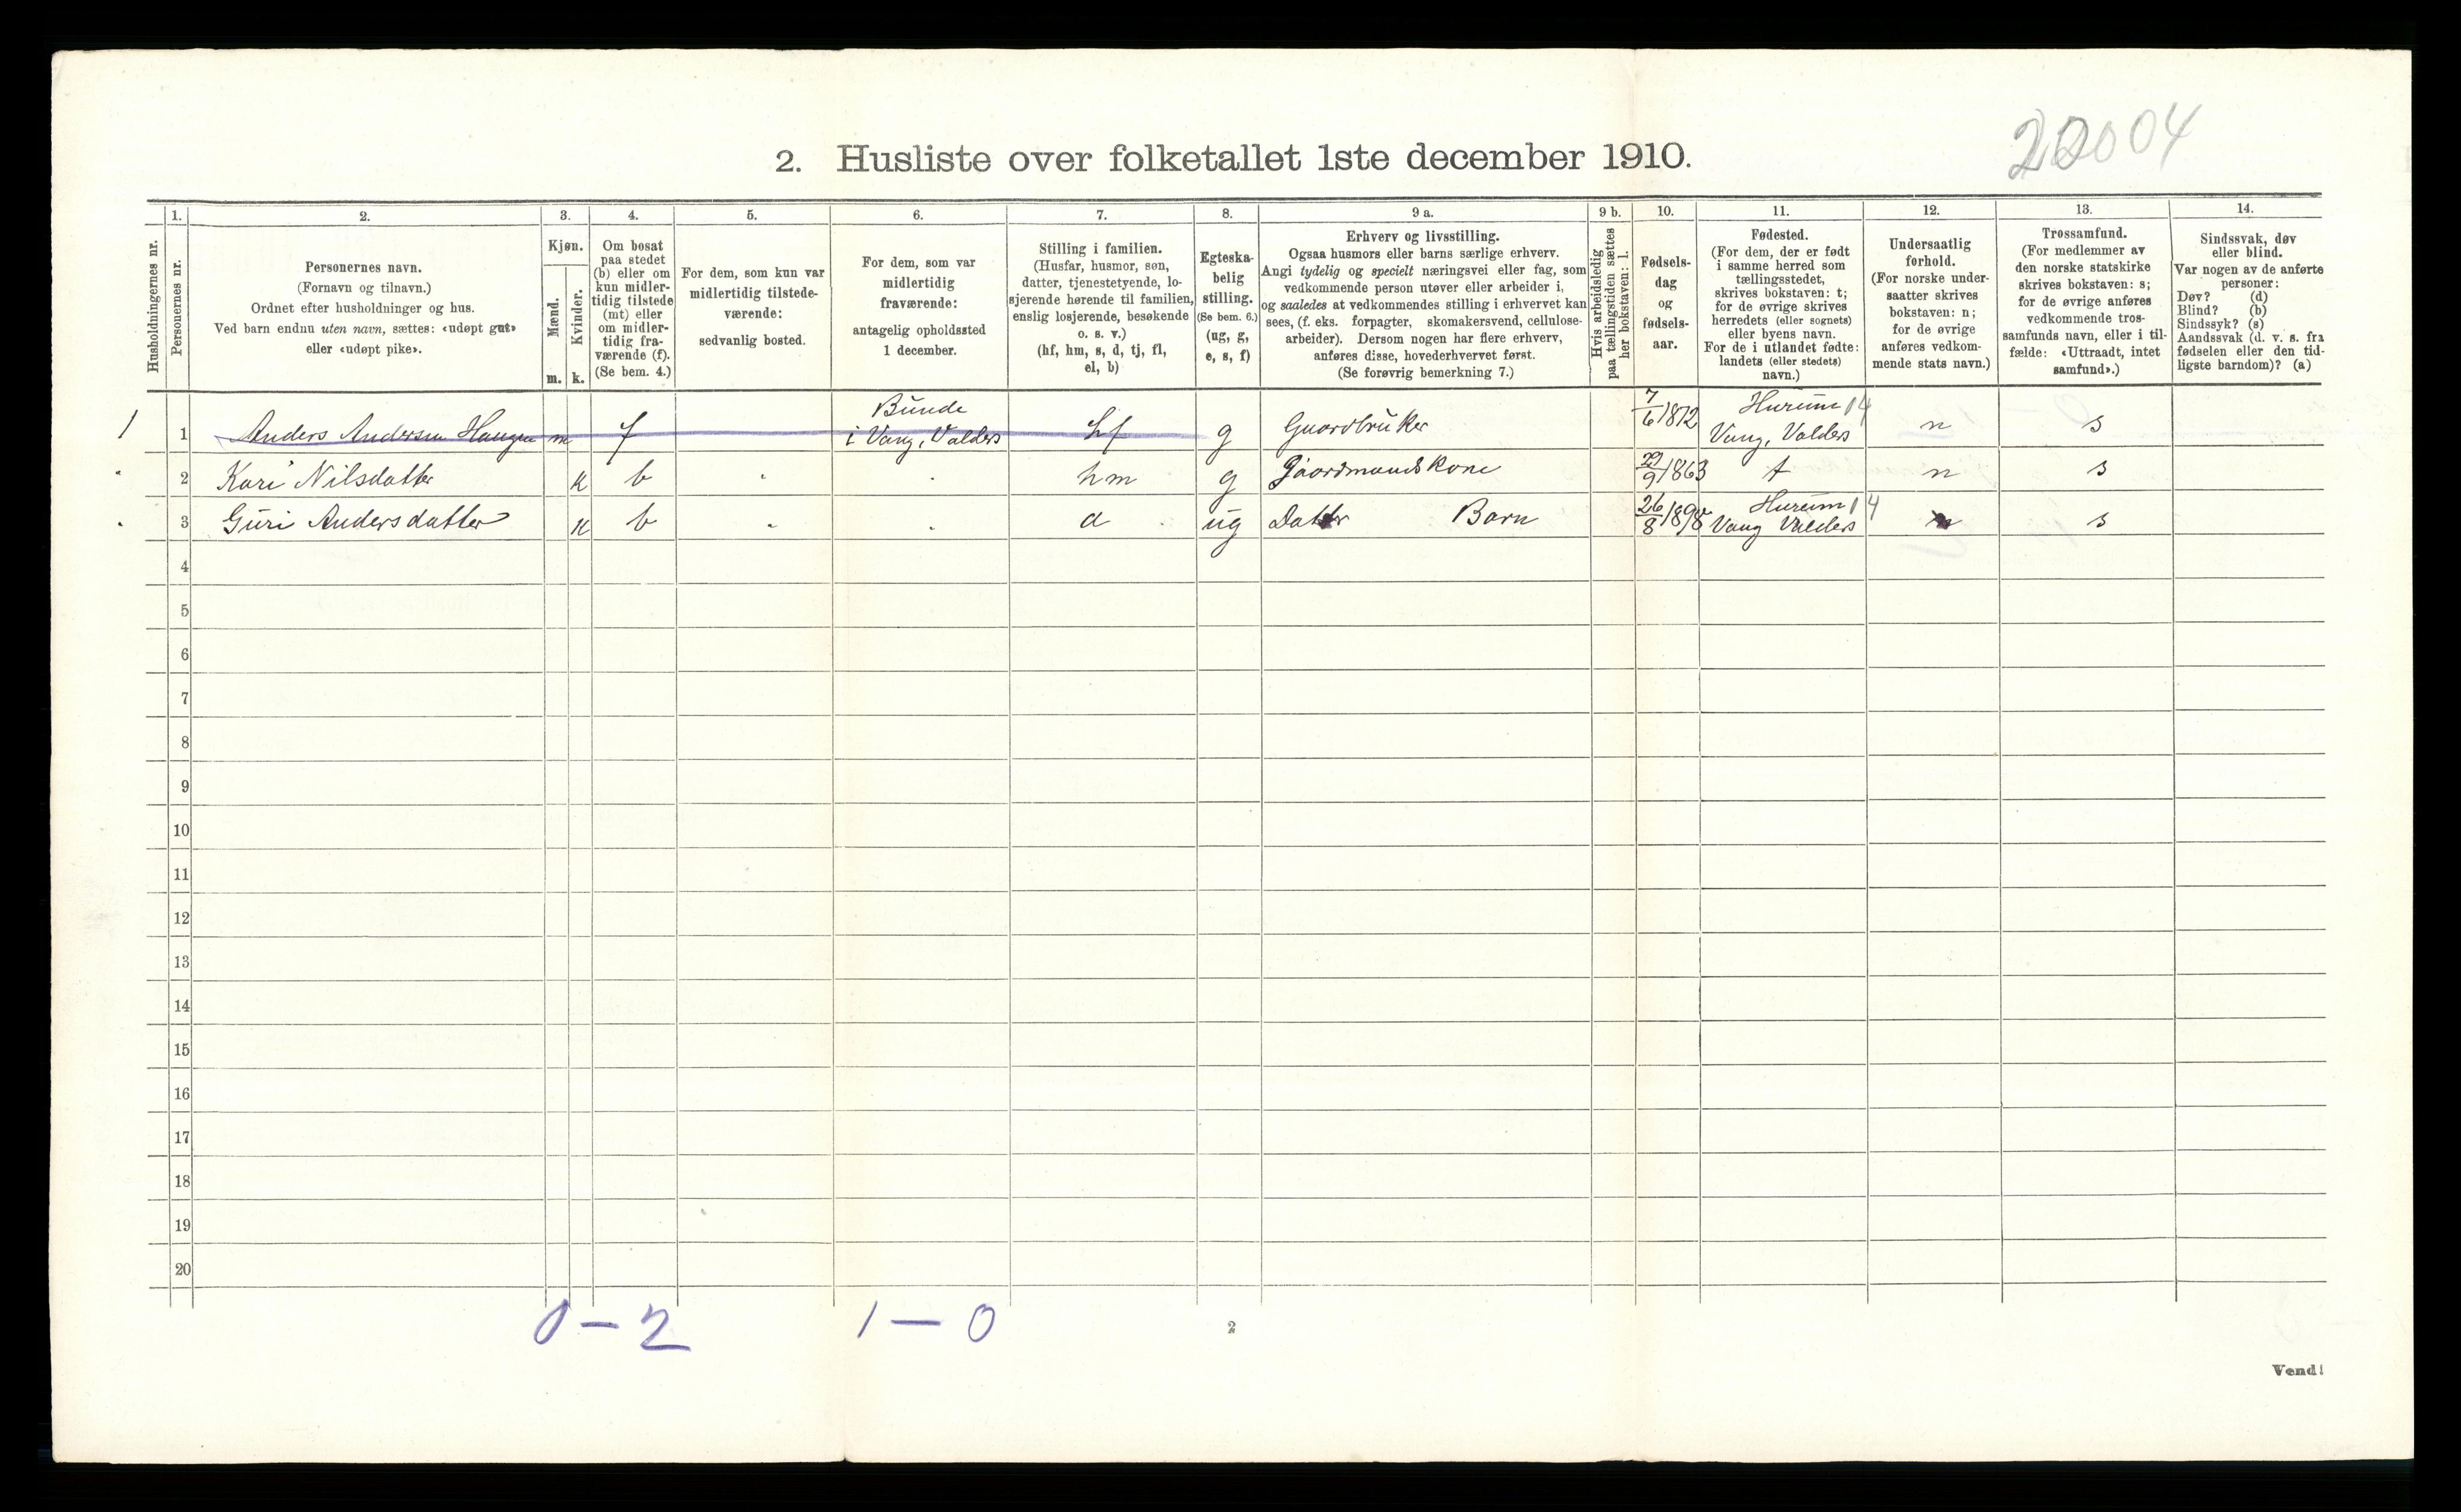 22004
2. Husliste over folketallet 1ste december 1910.
Husholdningernes nr.
1.
Personernes nr.
2.
Personernes navn.
(Fornavn og tilnavn.)
Ordnet efter husholdninger og hus.
Ved barn endnu uten navn, sættes: «udøpt gut»
eller «udøpt pike».
3.
Kjøn.
Mænd.
Kvinder.
m. k.
4.
Om bosat
paa stedet
(b) eller om
kun midler-
tidig tilstede
(mt) eller
om midler-
tidig fra-
værende (f).
(Se bem. 4.)
5.
For dem, som kun var
midlertidig tilstede-
værende:
sedvanlig bosted.
6.
For dem, som var
midlertidig
fraværende:
antagelig opholdssted
1 december.
7.
Stilling i familien.
(Husfar, husmor, søn,
datter, tjenestetyende, lo-
sjerende hørende til familien,
enslig losjerende, besøkende
o. s. v.)
(hf, hm, s, d, tj, fl,
el, b)
8.
Egteska-
belig
stilling.
(Se bem. 6.)
(ug, g,
e, s, f)
9 a.
Erhverv og livsstilling.
Ogsaa husmors eller barns særlige erhverv.
Angi tydelig og specielt næringsvei eller fag, som
vedkommende person utøver eller arbeider i,
og saaledes at vedkommendes stilling i erhvervet kan
sees, (f. eks. forpagter, skomakersvend, cellulose-
arbeider). Dersom nogen har flere erhverv,
anføres disse, hovederhvervet først.
(Se forøvrig bemerkning 7.)
9 b.
Hvis arbeidsledig
paa tællingstiden sættes
her bokstaven: l.
10.
Fødsels-
dag
og
fødsels-
aar.
11.
Fødested.
(For dem, der er født
i samme herred som
tællingsstedet,
skrives bokstaven: t;
for de øvrige skrives
herredets (eller sognets)
eller byens navn.
For de i utlandet fødte:
landets (eller stedets)
navn.)
12.
Undersaatlig
forhold.
(For norske under-
saatter skrives
bokstaven: n;
for de øvrige
anføres vedkom-
mende stats navn.)
13.
Trossamfund.
(For medlemmer av
den norske statskirke
skrives bokstaven: s;
for de øvrige anføres
vedkommende tros-
samfunds navn, eller i til-
fælde: «Uttraadt, intet
samfund».)
14.
Sindssvak, døv
eller blind.
Var nogen av de anførte
personer:
Døv? (d)
Blind? (b)
Sindssyk? (s)
Aandssvak (d. v. s. fra
fødselen eller den tid-
ligste barndom)? (a)
Bunde Hurum 14
1 1 Anders Andersen Haugen m f i Vang, Valders hf g Gaardbruker 7/6 1872 Vang, Valders n s
2 Kari Nilsdatter k b hm g Gaardmandskone 29/9 1863 t n s
Hurum 14
3 Guri Andersdatter k b d ug Datter Barn 26/8 1898 Vang Valders n s
4
5
6
7
8
9
10
11
12
13
14
15
16
17
18
19
20
0 – 2 1 – 0
2
Vend!